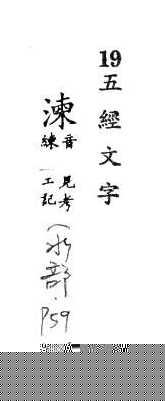 19五經文字
湅
音練
見考工記
(水部.P59